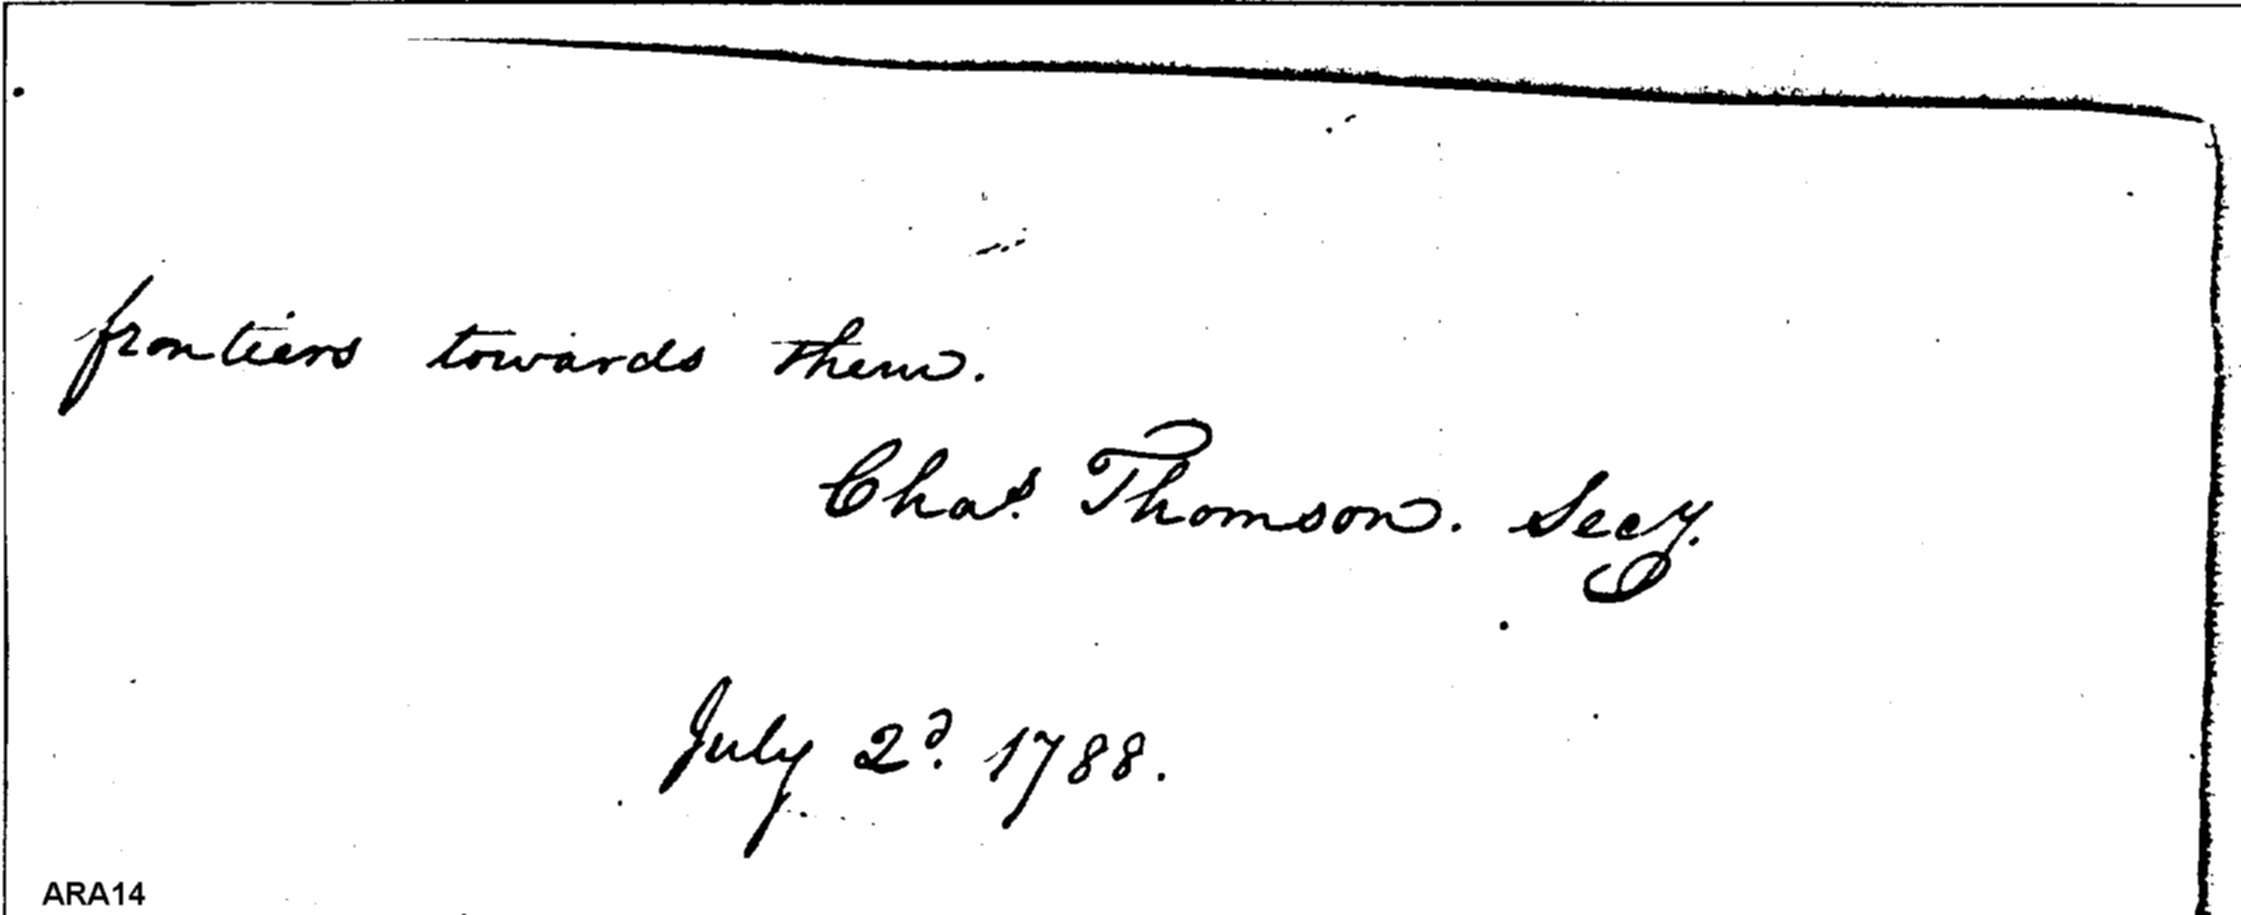 frontiers towards them.
Chas. Thomson. Secy.
July 2d. 1788.
ARA14